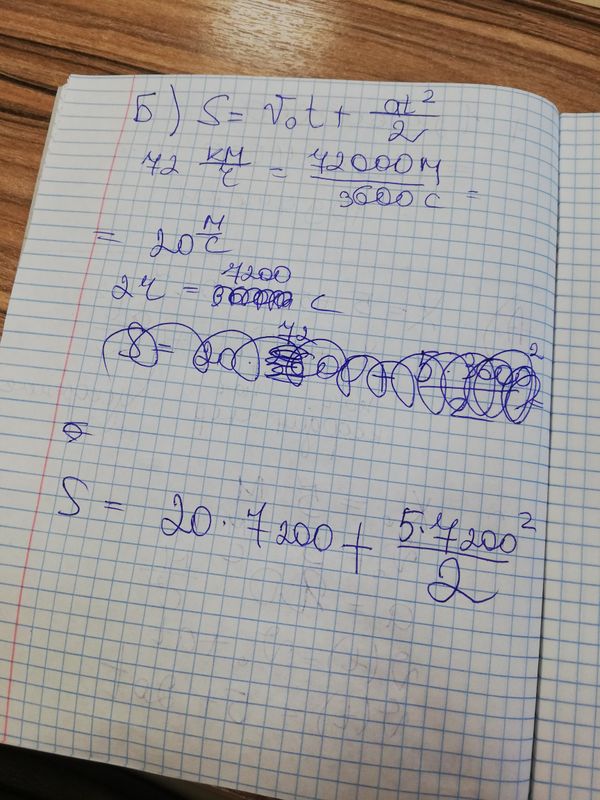 Б) S = V₀t + at²/2
72 км/ч = 72000м/3600с =
= 20 м/с
2ч = 7200 с
S = 20 · 7200 + 5·7200²/2